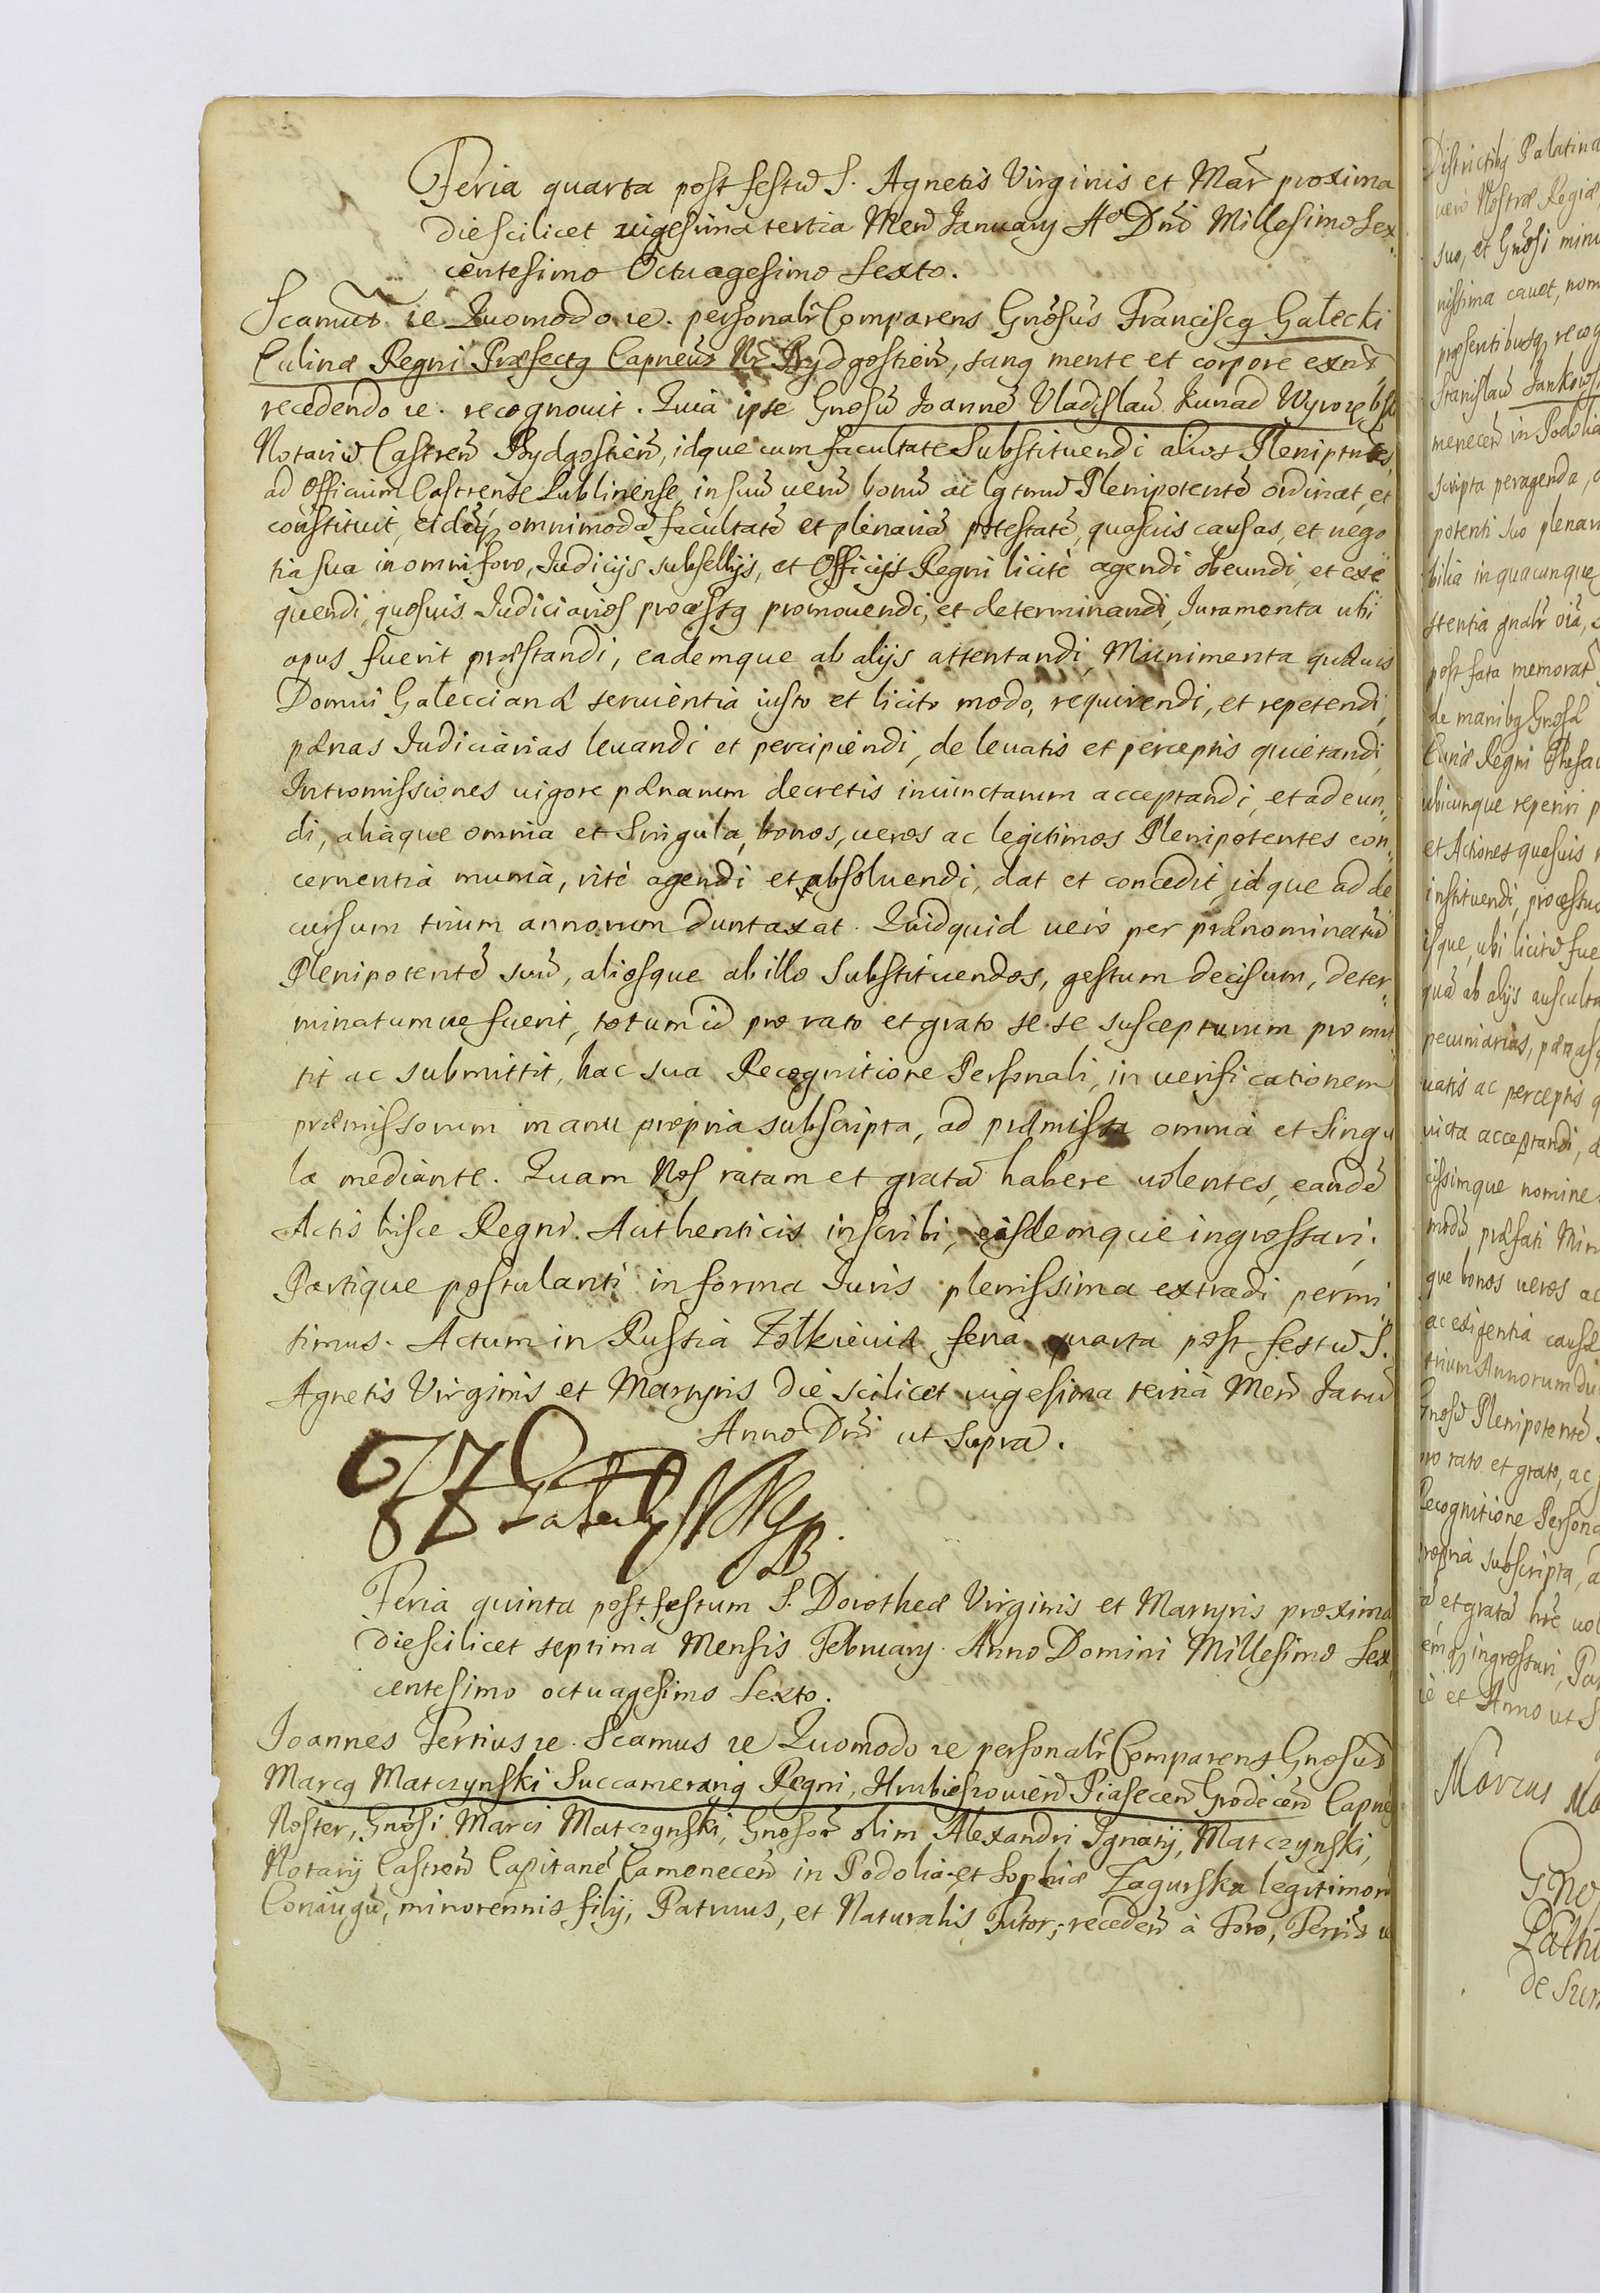 Feria quarta post festu S. Agnetis Virginis et Mar proxima
die scilicet uigesima tertia Men January Ao Dni Millesimo Sex,
centesimo Octuagesimo Sexto.
Scamus ꝛc Quomodo ꝛc. personalr Comparens Gnosus Franciscq Gałecki
Culinæ Regni Præfectq Capneus Nr Bydgostien, sanq mente et corpore exns
recedendo ꝛc. recognouit. Quia ipse Gnosu Joanne Vladislau Kunad Wyrozębsk
Notariu Castren Bydgostien, idque cum facultate Substituendi alios Pleniptntes,
ad Officium Castrense Lublinense, in suu ueru bonu ac lgtmu Plenipotente ordinat, et
constituit, eideq omnimoda facultate et plenaria potestate, quasuis causas, et nego
tia sua in omni foro, Judicijs subsellijs, et Officijs Regni licite agendi obeundi, et exe
quendi, quosuis Judiciarios processq promouendi, et determinandi, Juramenta ubi
opus fuerit præstandi, eademque ab alijs attentandi, Munimenta quæuis
Domui Gałeccianæ seruientia iusto et licito modo, requirendi, et repetendi,
pænas Judiciarias leuandi et percipiendi, de leuatis et perceptis quietandi,
Intromissiones uigore pænarum decretis iniunctarum acceptandi, et adeun,
di, aliaque omnia et Singula, bonos, ueros ac legitimos Plenipotentes con,
cernentia munia, rite agendi et absoluendi, dat et concedit, idque ad de
cursum trium annorum duntaxat. Quidquid uero per prænominatu
Plenipotente suu, aliosque ab illo Substituendos, gestum decisum, deter,
minatumue fuerit, totum id pro rato et grato se se suscepturum promit
tit ac submittit, hac sua Recognitione Personali, in uerificationem
præmissorum manu propria subscripta, ad præmissa omnia et Singu
la mediante. Quam Nos ratam et grata habere uolentes, eande
Actis hisce Regni Authenticis inscribi, eisdemque ingrossari,
Partique postulanti in forma Juris plenissima extradi permi
timus. Actum in Russia Zolkieuiæ feria quarta post festu S.
Agnetis Virginis et Martyris die scilicet uigesima tertia Men Janu
Anno Dni ut Supra.
Feria quinta post festum S. Dorotheæ Virginis et Martyris proxima
die scilicet septima Mensis February Anno Domini Millesimo Sex,
centesimo octuagesimo Sexto.
Joannes Tertius ꝛc. Scamus ꝛc Quomodo ꝛc personalr Comparens Gnosus
Marcq Matczynski Succamerariq Regni, Hrubieszouien Piasecen Grodecen Capneq
Noster, Gnosi Marci Matczynski, Gnosor olim Alexandri Ignatij, Matczynski,
Notarij Castren Capitane Camenecen in Podolia et Sophiæ Zagurska legitimor
Coniugu, minorennis filij, Patruus, et Naturalis Tutor, receden à Foro, Terris ꝛc
Districtibq Palatina
uero Nostræ Regiæ
suo, et Gnosi mino
nissima cauet, nom
præsentibusq recog
Stanislau Jankows
menecen in Podolia
scripta peragenda,
potenti suo plenar
bilia in quacunque
stentia gnalr oia,
post fata memorat
de manibq Gnosæ
Curiæ Regni Thesau
ubicunque reperiri p
et Actiones quasuis
instituendi, processu
isque, ubi licitu fue
qua ab alijs ausculta
pecuniarias, pænasq
uatis ac perceptis q
uicta acceptandi, a
cissimque nomine
modu præfati Min
que bonos ueros ac
ac exigentia causæ
trium Annorum du
Gnosu Plenipotente
pro rato et grato, ac
Recognitione Persona
propria subscripta, a
et grata hre uol
emq ingrossari, Par
ie et Anno ut S
Marcus Ma
Gno
de Sur